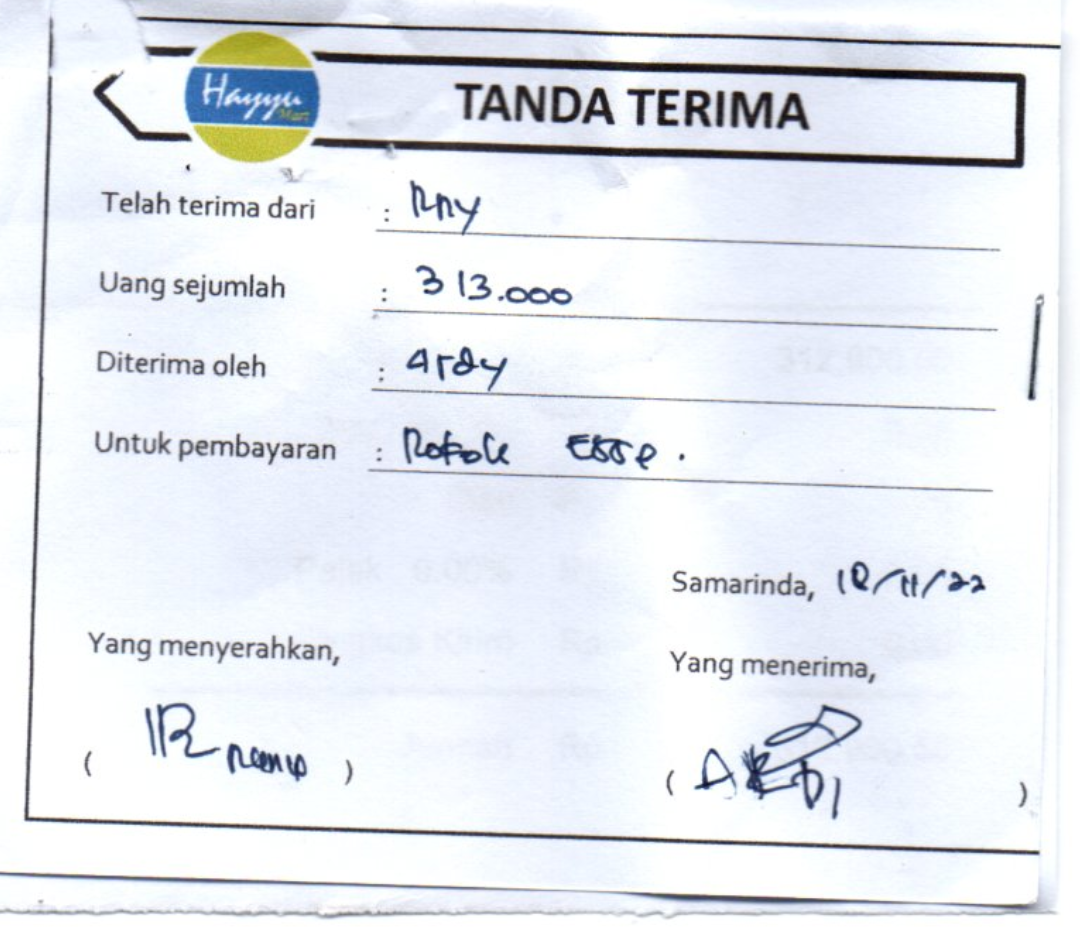 Hayyu
Mart
TANDA TERIMA
Telah terima dari :
Uang sejumlah : 313.000
Diterima oleh : Ardy
Untuk pembayaran : Rokok Esse.
Samarinda, /11/22
Yang menyerahkan,
Yang menerima,
( )
( ARDI )